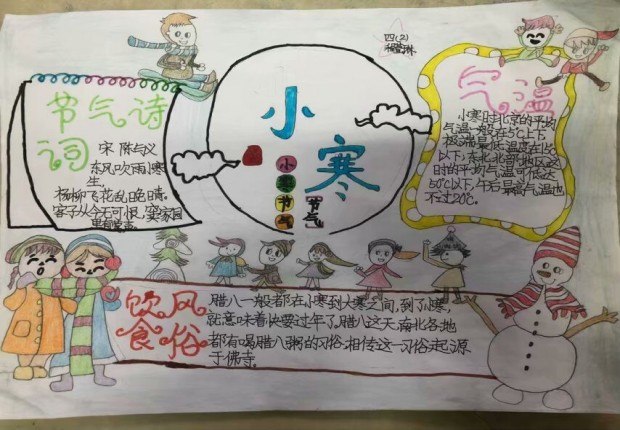 四(2)
节气诗词
宋 陈与义
东风吹雨小寒
生,
杨柳飞花乱晚晴。
客子从今无可恨,窦家园
里有莺声。
小寒
小寒节气
节气
气温
小寒时北京的平均
气温一般在5℃上下,
极端最低温度在15℃
以下;东北北部地区这
时的平均气温可低达
50℃以下,午后最高气温也
不过20℃。
饮食风俗
腊八一般都在小寒到大寒之间,到了小寒,
就意味着快要过年了,腊八这天,南北各地
都有喝腊八粥的习俗,相传这一习俗起源
于佛寺。